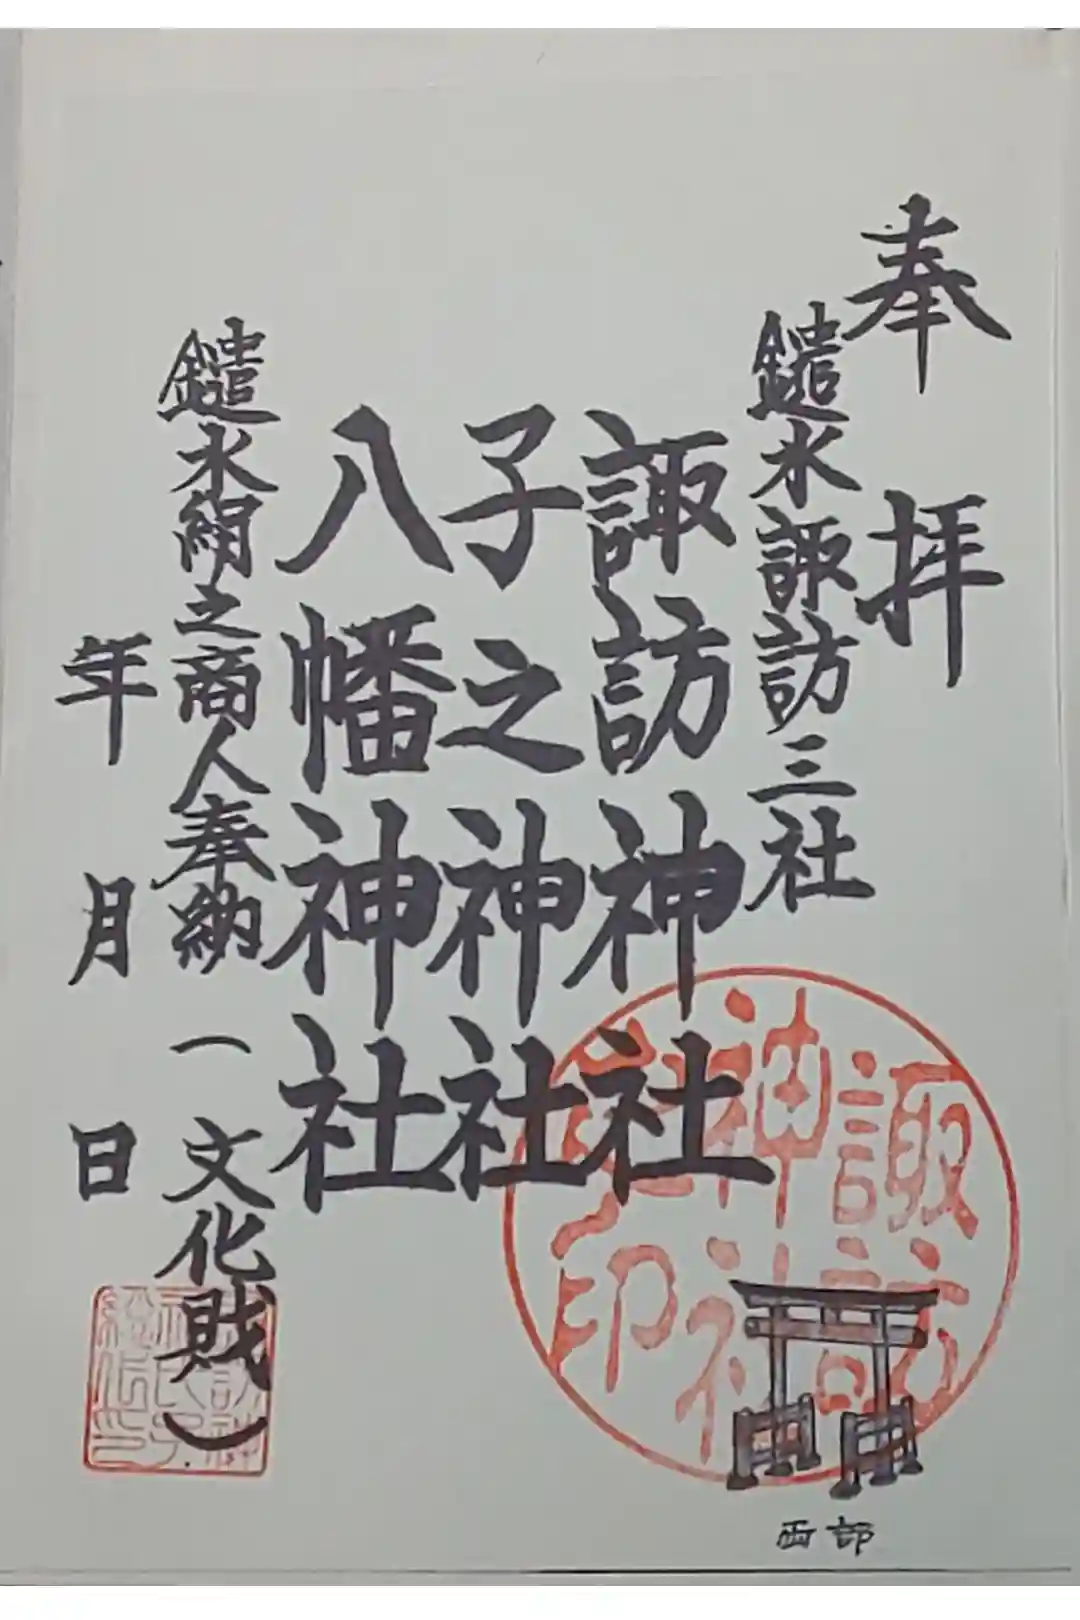 奉拝
鑓水諏訪三社
諏訪神社
子之神社
八幡神社
鑓水絹之商人奉納（文化財）
年月日
諏訪
神社
印
西部